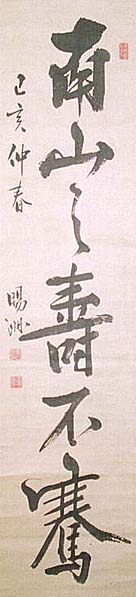 南山之壽不騫
己亥仲春
暘洲